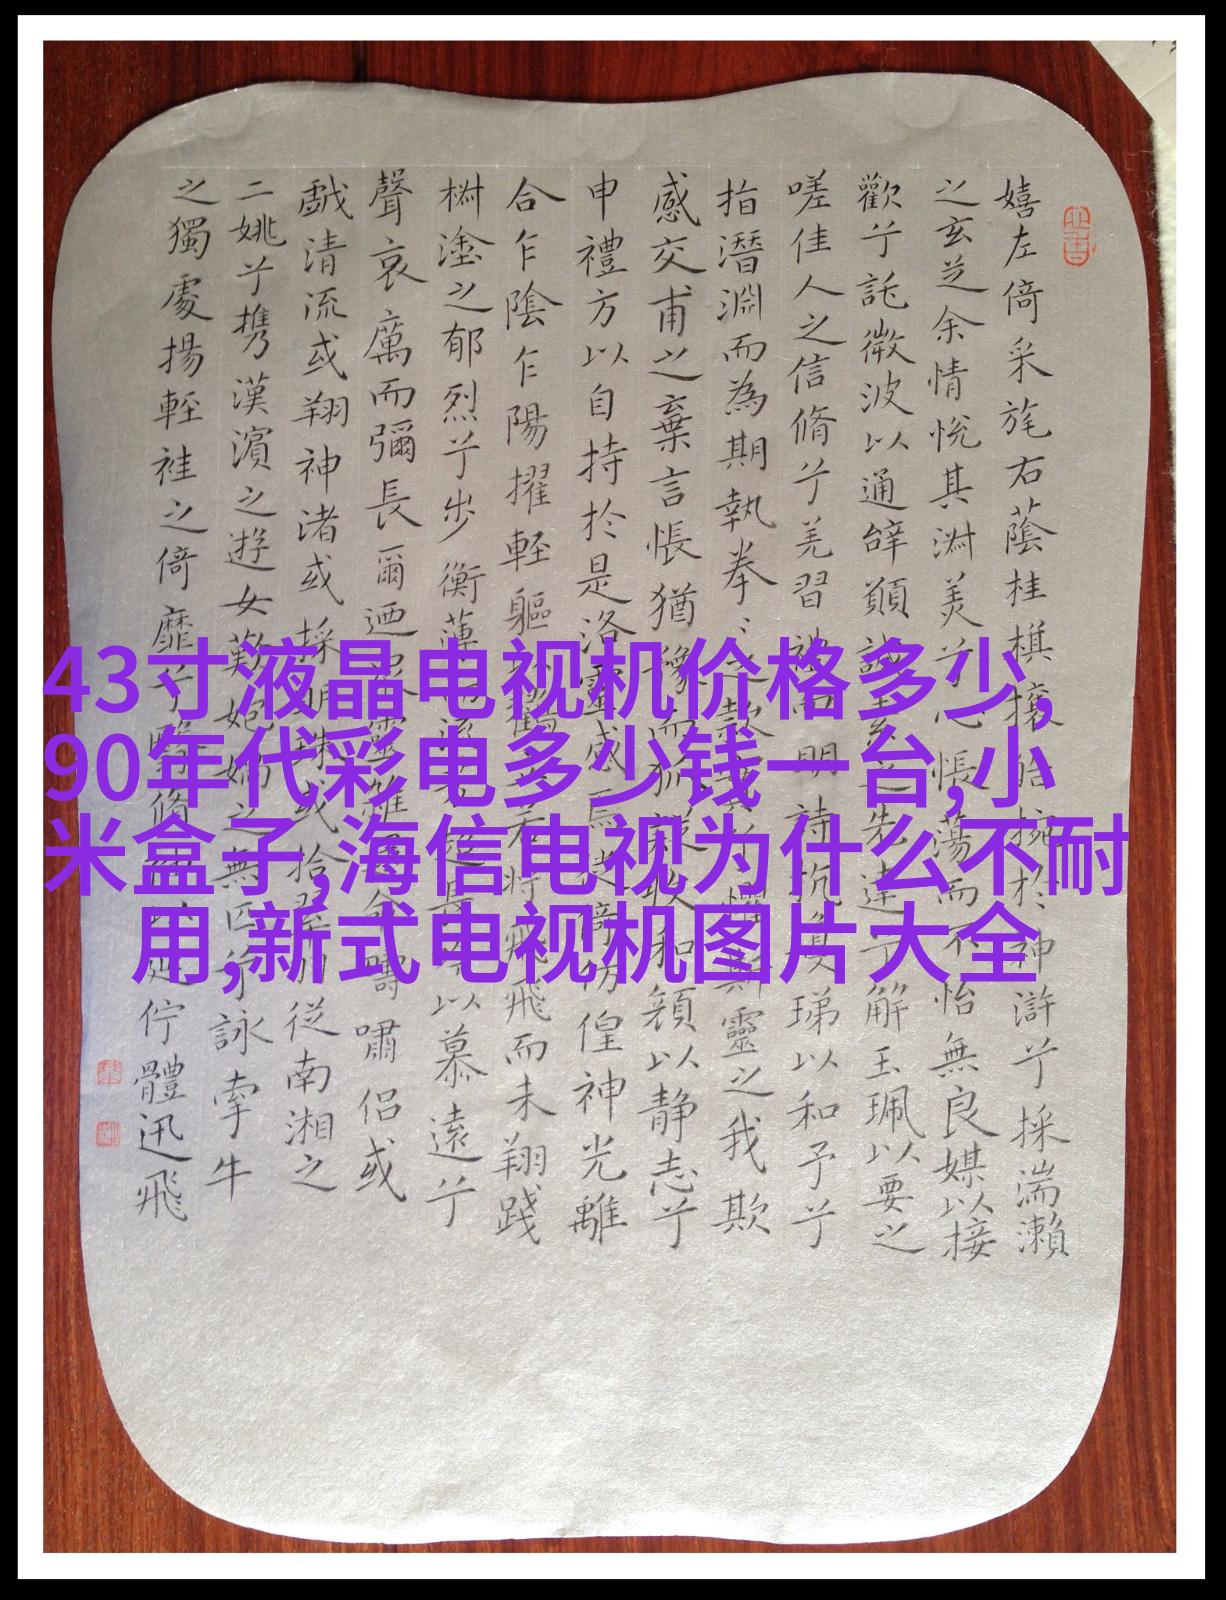 嬉左倚采旄右蔭桂棋攘皓捥於神滸兮採湍瀨
之玄芝余情悅其淑美兮心悵蕩而不怡無良媒以接
歡兮託微波以通辭願誠素之先達兮解玉珮以要之
嗟佳人之信脩兮羌習而明詩抗珶以和予兮
指潛淵而為期執拳〻之款實兮懼斯靈之我欺
感交甫之棄言悵猶豫而狐疑收和顏以静志兮
申禮方以自持於是洛靈感焉徙倚彷徨神光離
合乍陰乍陽擢輕軀鶴立若將飛而未翔踐
椒塗之郁烈兮步衡薄而流芳超長吟以慕遠兮
聲哀厲而彌長爾迺眾靈雜命疇嘯侶或
戲清流或翔神渚或採明珠或拾翠羽從南湘之
二姚兮携漢濱之遊女歎媧之無匹兮詠牽牛
之獨處揚輕袿之倚靡兮翳脩袖以延佇體迅飛
43寸液晶电视机价格多少,
90年代彩电多少钱一台,小
米盒子,海信电视为什么不耐
用,新式电视机图片大全